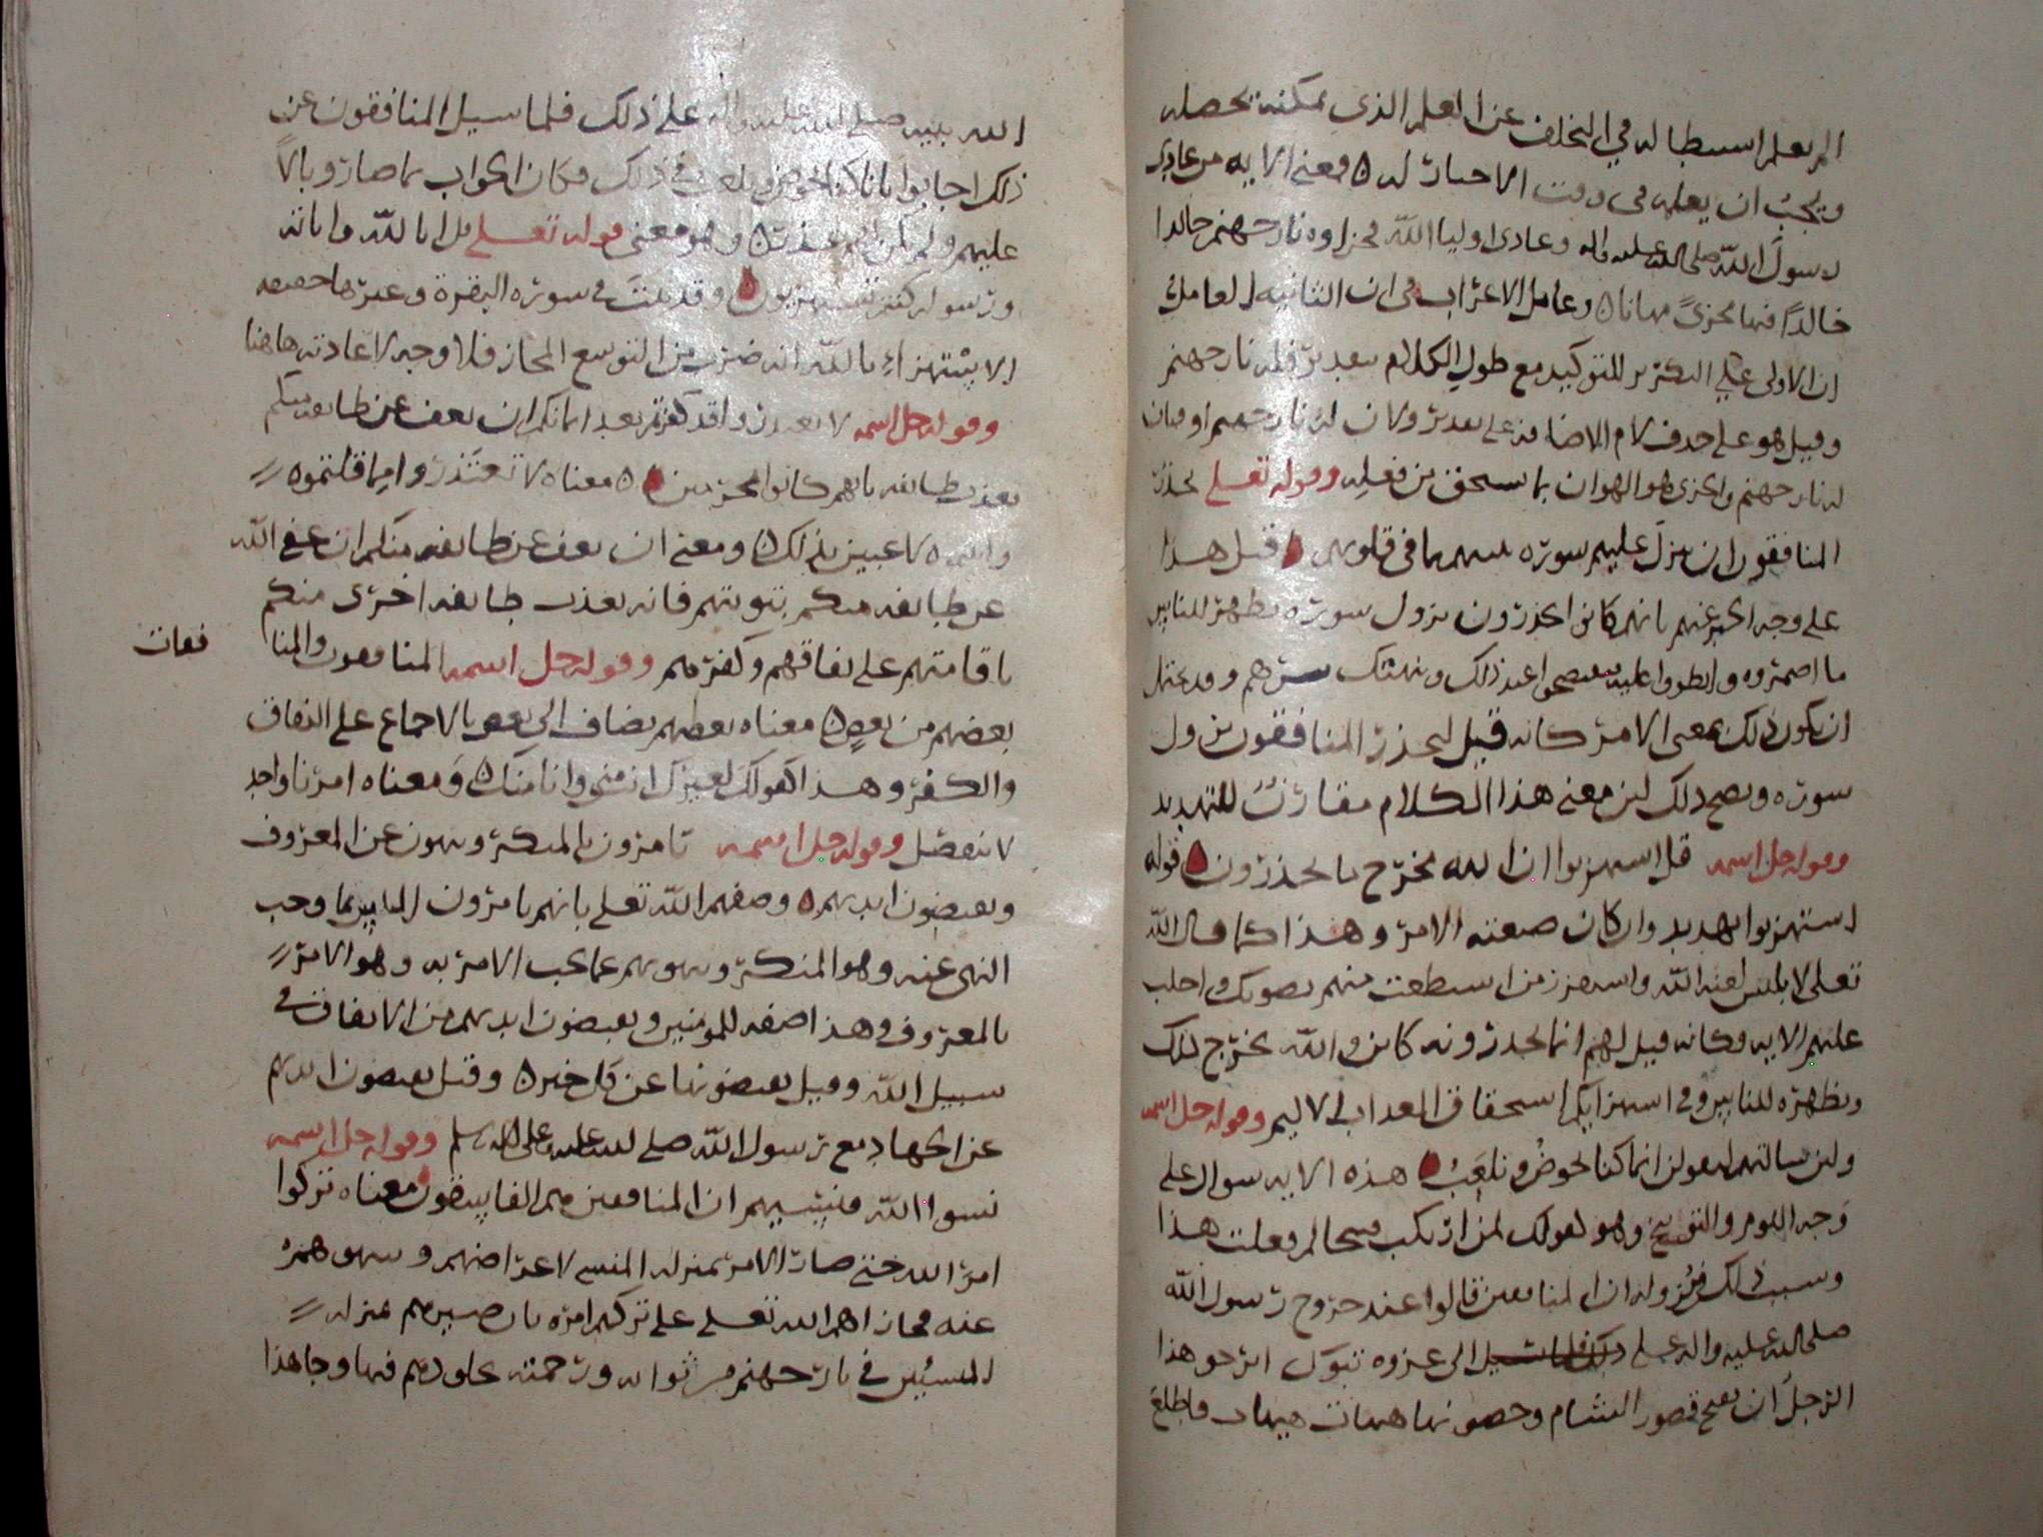 الم يعلم استبطا له في التخلف عن العلم الذي يمكنه تحصله
ويجب ان يعلمه في وقت الاخبار له ٥ ومعنى الايه من عادى
رسول الله صلى الله عليه واله وعادى اوليا الله فجزاوه نار جهنم خالدا
خالدًا فيها مخزىً مهانا ٥ وعامل الاعراب في ان الثانيه العامل في
ان الاولى على التكرير للتوكيد مع طول الكلام بتقدير فله نار جهنم
وقيل هو على حذف لام الاضافه على تقدير ولان له نار جهنم او فبان
له نار جهنم والخزى هو الهوان بما يستحق من فعله وقوله تعلى يحذر
المنافقون ان ينزل عليهم سوره تنبيهم بما في قلوبهم ٥ قيل هذا
على وجه الخبر عنهم بانهم كانوا يحذرون نزول سوره تظهر للناس
ما اضمروه وانطووا عليه فيفتضحوا عند ذلك وينهتك سترهم وقد يحتمل
ان يكون ذلك بمعنى الامر كانه قيل ليحذر المنافقون نزول
سوره ويصح ذلك لان معنى هذا الكلام مقارنٌ للتهديد
وقوله جل اسمه قل استهزوا ان الله مخرج ما تحذرون ٥ قوله
استهزوا تهديد وان كان صيغته الامر وهذا كما قال الله
تعلى لابليس لعنه الله واستفزز من استطعت منهم بصوتك واجلب
عليهم الايه وكانه قيل لهم انما تحذرونه كاين والله مخرج لذلك
ومظهره للناس وفي استهزايكم استحقاق العذاب الاليم وقوله جل اسمه
ولين سالتهم ليقولن انما كنا نخوضُ ونلعبُ ٥ هذه الايه سوال على
وجه اللوم والتوبيخ وهو كقولك لمن ارتكب قبيحا لم فعلت هذا
وسبب ذلك ونزوله ان المنافقين قالوا عند خروج رسول الله
صلى الله عليه واله وسلم الى غزوه تبوك ايرجو هذا
الرجل ان يفتح قصور الشام وحصونها هيهات هيهات فاطلع
الله نبيه صلى الله عليه واله على ذلك فلما سيل المنافقون عن
ذلك اجابوا بانا كنا نخوض ونلعب في ذلك فكان الجواب بما صار وبالاً
عليهم ولم يكن لهم عذر ٥ وهو معنى قوله تعلى قل ابالله واياته
ورسوله كنتم تستهزون ٥ وقد بينت في سوره البقرة وغيرها حقيقه
الاستهزاء بالله انه ضرب من التوسع المجاز فلا وجه لاعادته هاهنا
وقوله جل اسمه لا تعتذروا قد كفرتم بعد ايمانكم ان نعف عن طايفه منكم
نعذب طايفه بانهم كانوا مجرمين ٥ معناه لا تعتذروا انما قلتموه
وانتم لاعبين بذلك ٥ ومعنى ان نعف عن طايفه منكم ان عفى الله
عن طايفه منكم بتوبتهم فانه يعذب طايفه اخرى منكم
باقامتهم على نفاقهم وكفرهم وقوله جل اسمه المنافقون والمنا
فقات
بعضهم من بعض ٥ معناه بعضهم يضاف الى بعض بالاجماع على النفاق
والكفر وهذا كقولك لغيرك انت منى وانا منك ٥ ومعناه امرنا واحد
لا ينفصل وقوله جل اسمه يامرون بالمنكر وينهون عن المعروف
ويقبضون ايديهم ٥ وصفهم الله تعلى بانهم يامرون الناس بما وجب
النهى عنه وهو المنكر وينهونهم عما يجب الامر به وهو الامر
بالمعروف وهذا صفه للمومنين ويقبضون ايديهم من الانفاق في
سبيل الله وقيل يقبضونها عن كل خير ٥ وقيل يقبضون ايديهم
عن الجهاد مع رسول الله صلى الله عليه وعلى اله وسلم وقوله جل اسمه
نسوا الله فنسيهم ان المنافقين هم الفاسقون ٥ معناه تركوا
امر الله حتى صار الامر بمنزله المنسى لاعراضهم وسهوهم
عنه فجازاهم الله تعلى على تركهم امره بان صيرهم بمنزله
المنسيين في نار جهنم من ثوابه ورحمته بخلودهم فيها وجا هذا